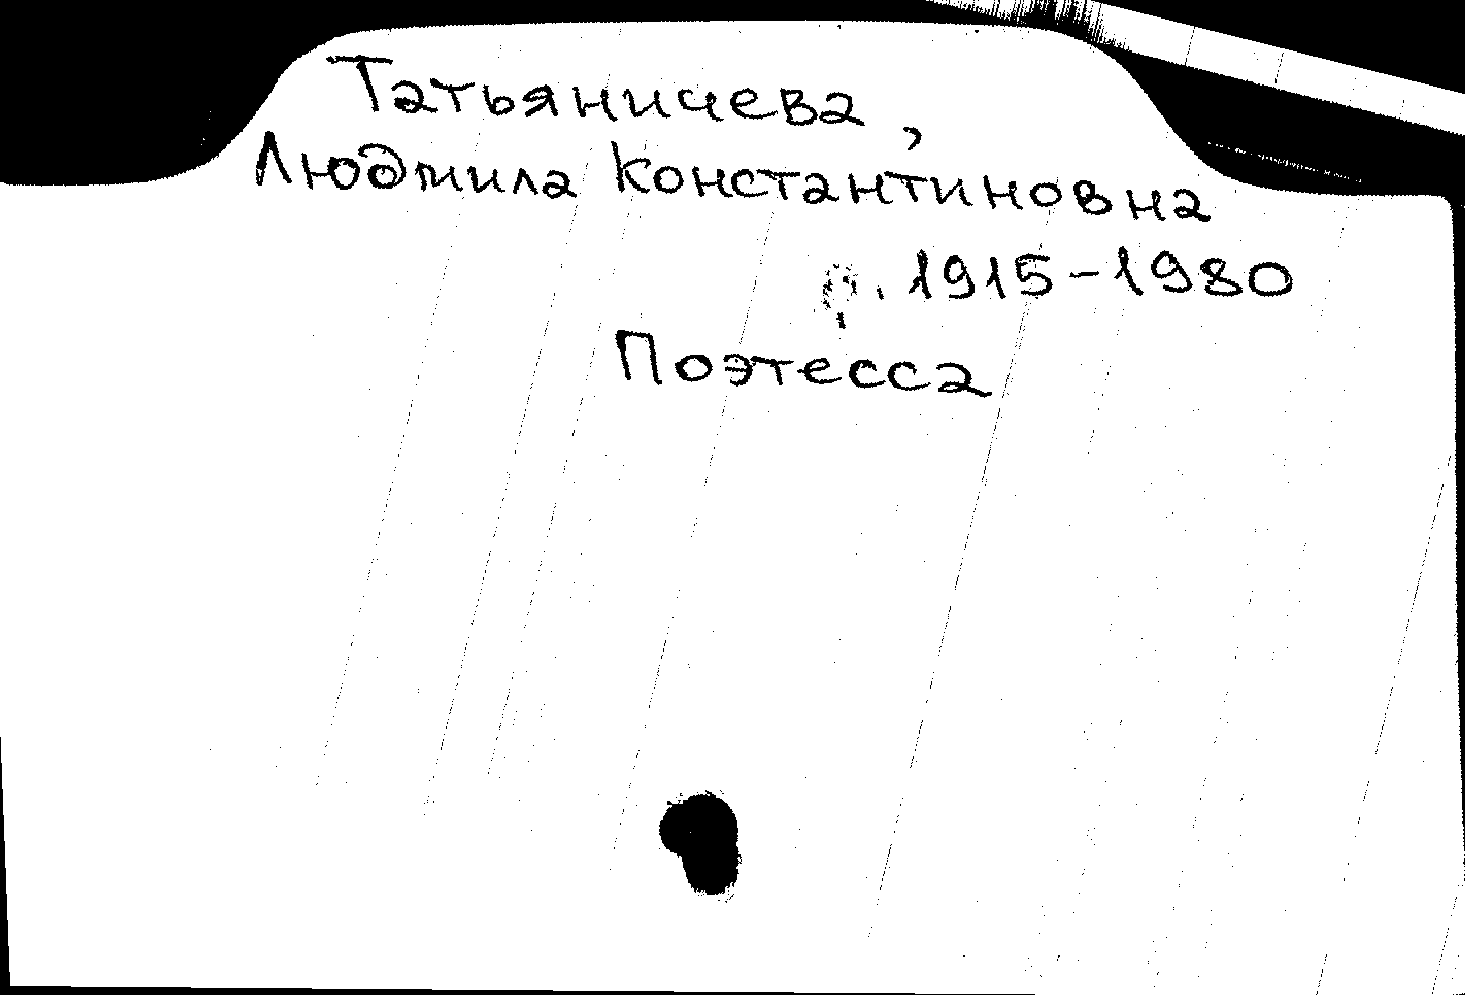 Татьяничева,
Людмила Константиновна
р. 1915-1980
Поэтесса